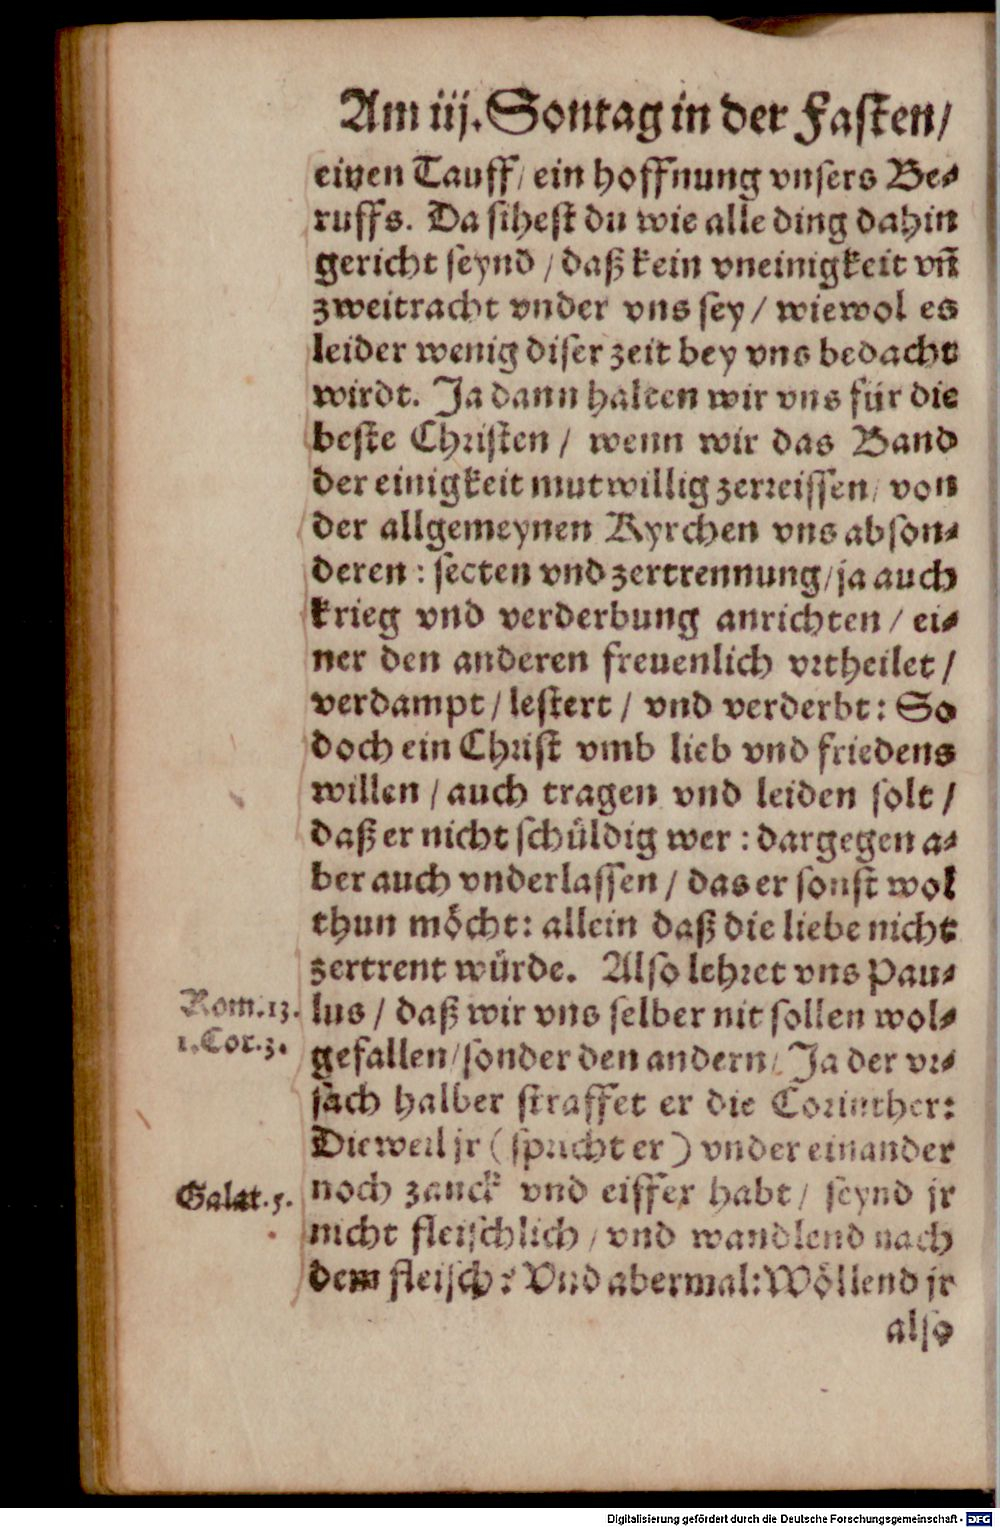 Am iij. Sontag in der Fasten/
einen Tauff/ ein hoffnung vnsers Be⸗
ruffs. Da sihest du wie alle ding dahin
gericht seynd / daß kein vneinigkeit vñ
zweitracht vnder vns sey / wiewol es
leider wenig diser zeit bey vns bedacht
wirdt. Ja dann halten wir vns für die
beste Christen / wenn wir das Band
der einigkeit mutwillig zerreissen/ von
der allgemeynen Kyrchen vns abson⸗
deren : secten vnd zertrennung/ ja auch
krieg vnd verderbung anrichten / ei⸗
ner den anderen freuenlich vrtheilet /
verdampt / lestert / vnd verderbt: So
doch ein Christ vmb lieb vnd friedens
willen / auch tragen vnd leiden solt /
daß er nicht schüldig wer : dargegen a⸗
ber auch vnderlassen / das er sonst wol
thun möcht: allein daß die liebe nicht
zertrent würde. Also lehret vns Pau⸗
Rom.13.
1.Cor.3.
lus / daß wir vns selber nit sollen wol⸗
gefallen/ sonder den andern/ Ja der vr⸗
sach halber straffet er die Corinther:
Dieweil jr ( spricht er ) vnder einander
Galat.5.
noch zanck vnd eiffer habt / seynd jr
nicht fleischlich / vnd wandlend nach
dem fleisch? Vnd abermal: Wöllend jr
also
Digitalisierung gefördert durch die Deutsche Forschungsgemeinschaft - DFG